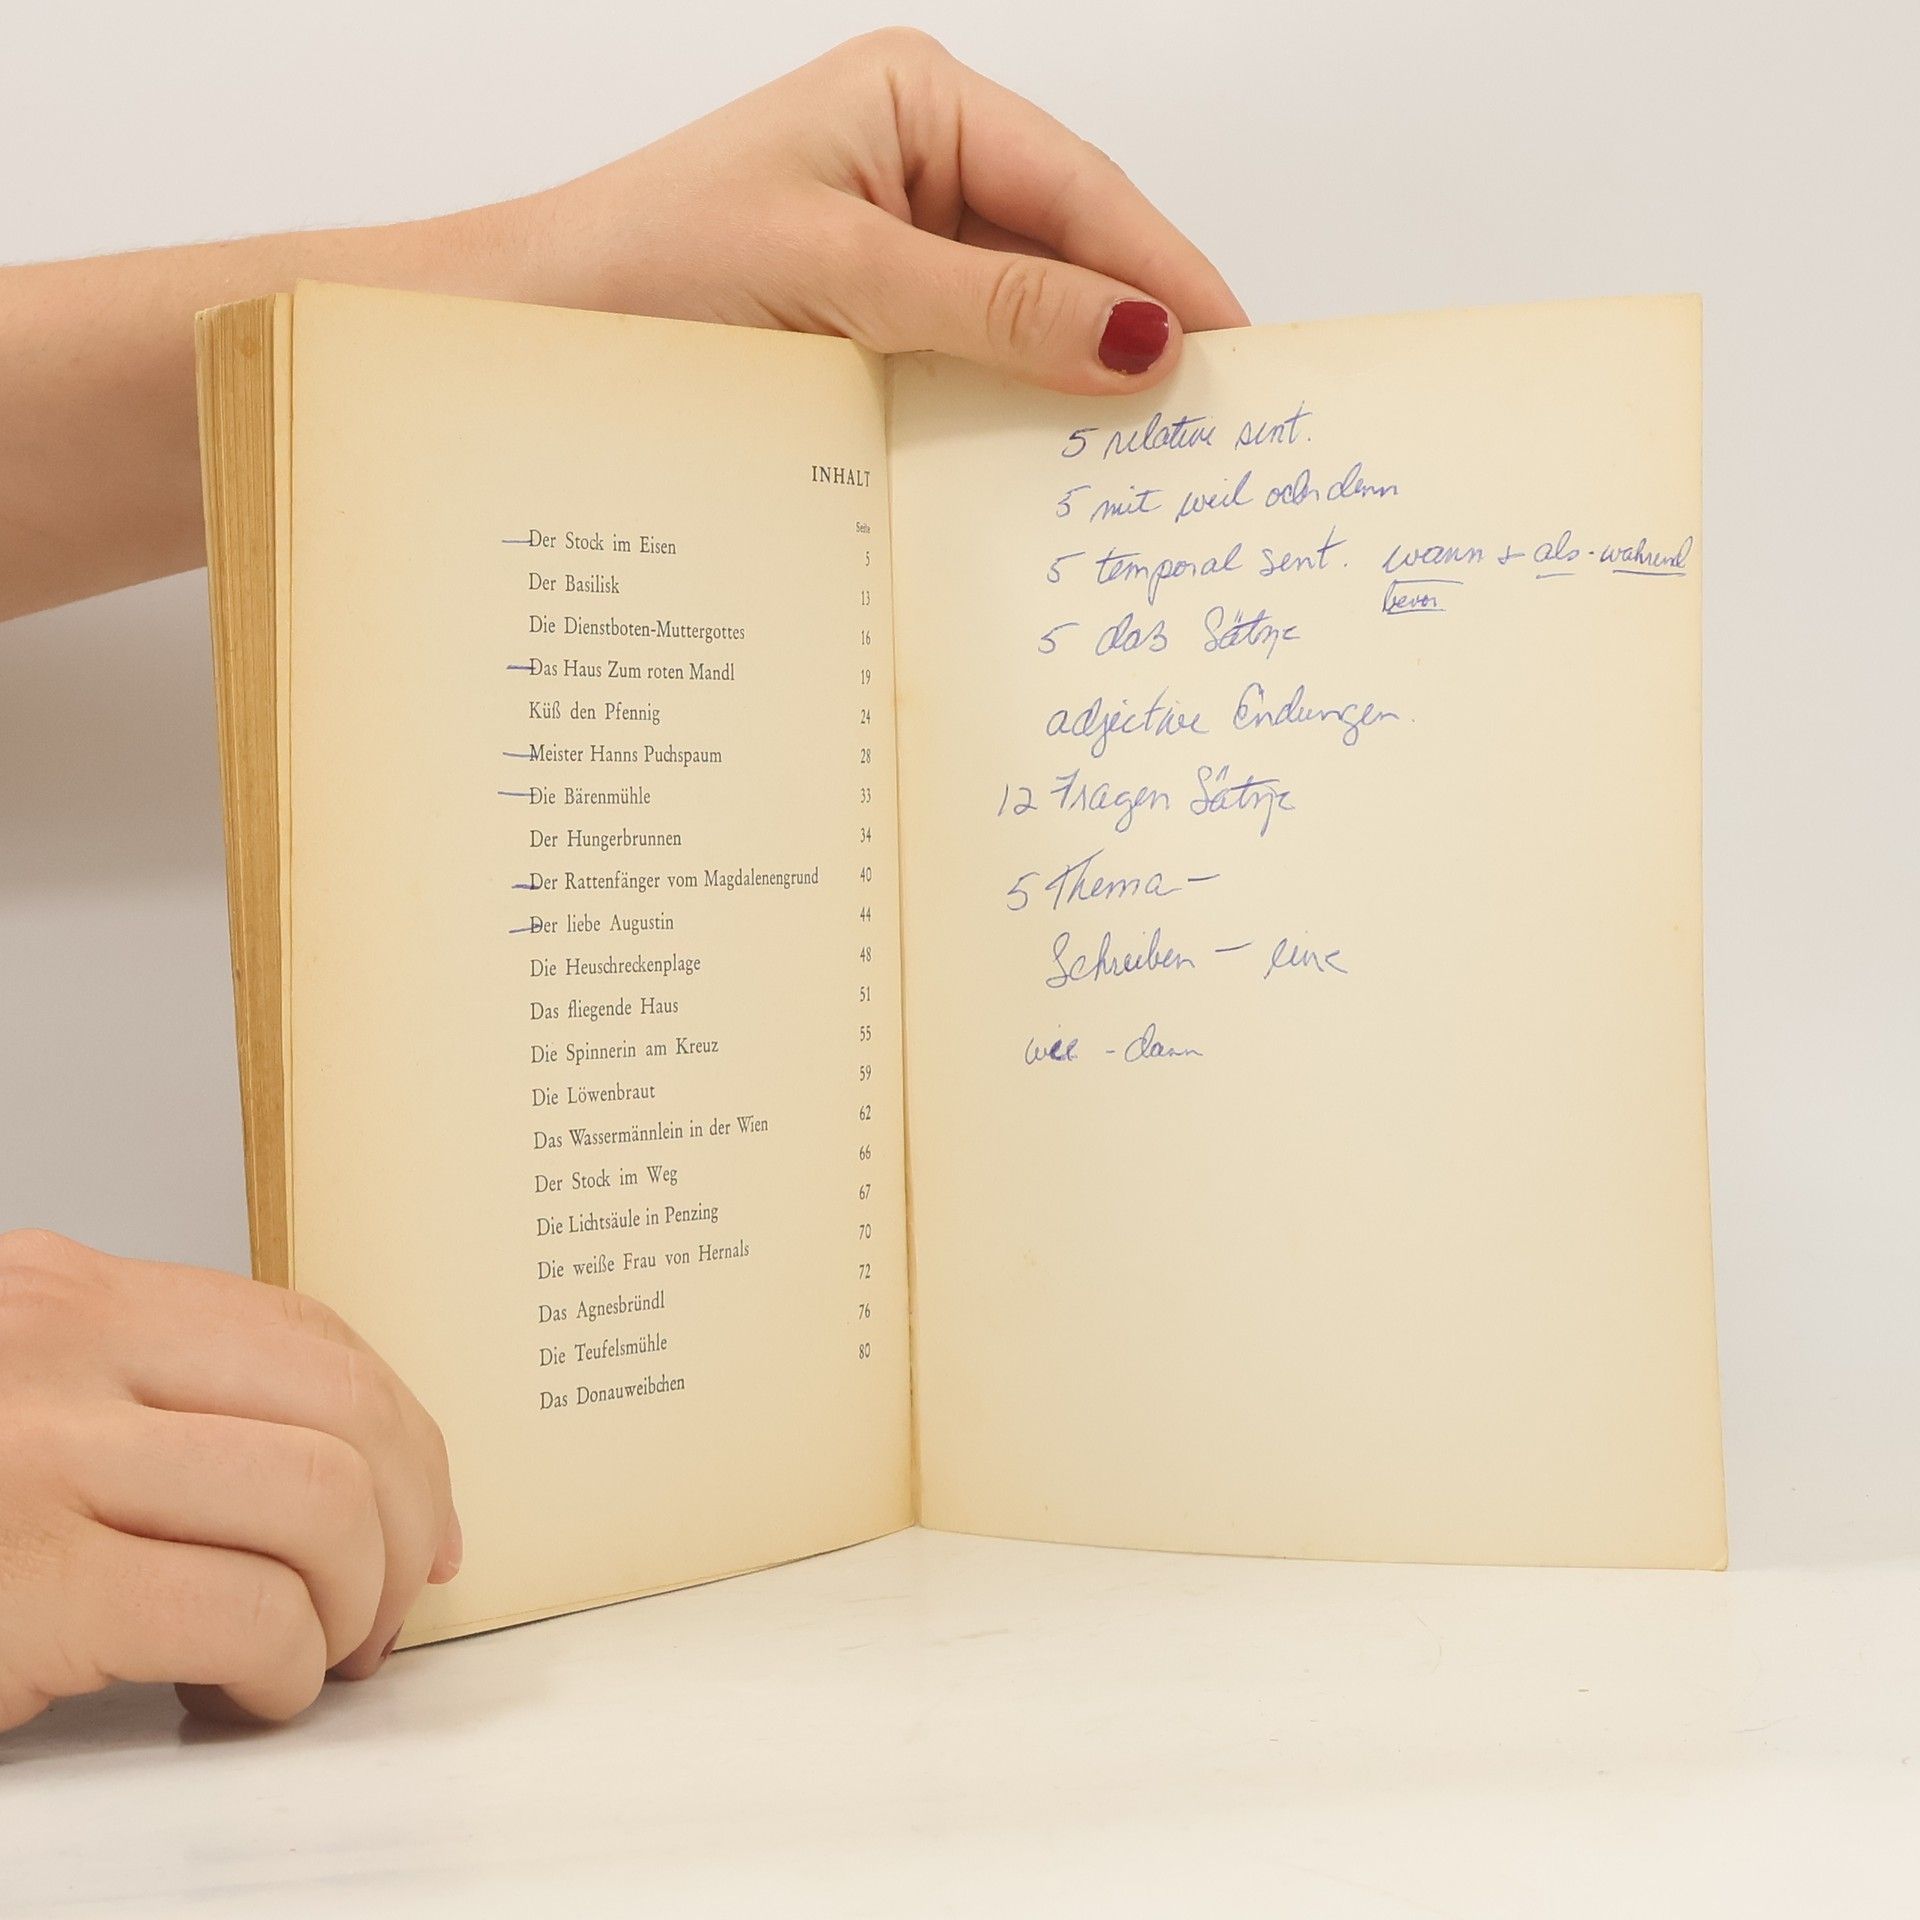 INHALT
Seite
Der Stock im Eisen 5
Der Basilisk 13
Die Dienstboten-Muttergottes 16
Das Haus Zum roten Mandl 19
Küß den Pfennig 24
Meister Hanns Puchspaum 28
Die Bärenmühle 33
Der Hungerbrunnen 34
Der Rattenfänger vom Magdalenengrund 40
Der liebe Augustin 44
Die Heuschreckenplage 48
Das fliegende Haus 51
Die Spinnerin am Kreuz 55
Die Löwenbraut 59
Das Wassermännlein in der Wien 62
Der Stock im Weg 66
Die Lichtsäule in Penzing 67
Die weiße Frau von Hernals 70
Das Agnesbründl 72
Die Teufelsmühle 76
Das Donauweibchen 80
5 relative sent.
5 mit weil oder denn
5 temporal sent. wann + als - während
bevor
5 daß Sätze
adjective Endungen.
12 Fragen Sätze
5 Thema —
Schreiben — eine
- dann